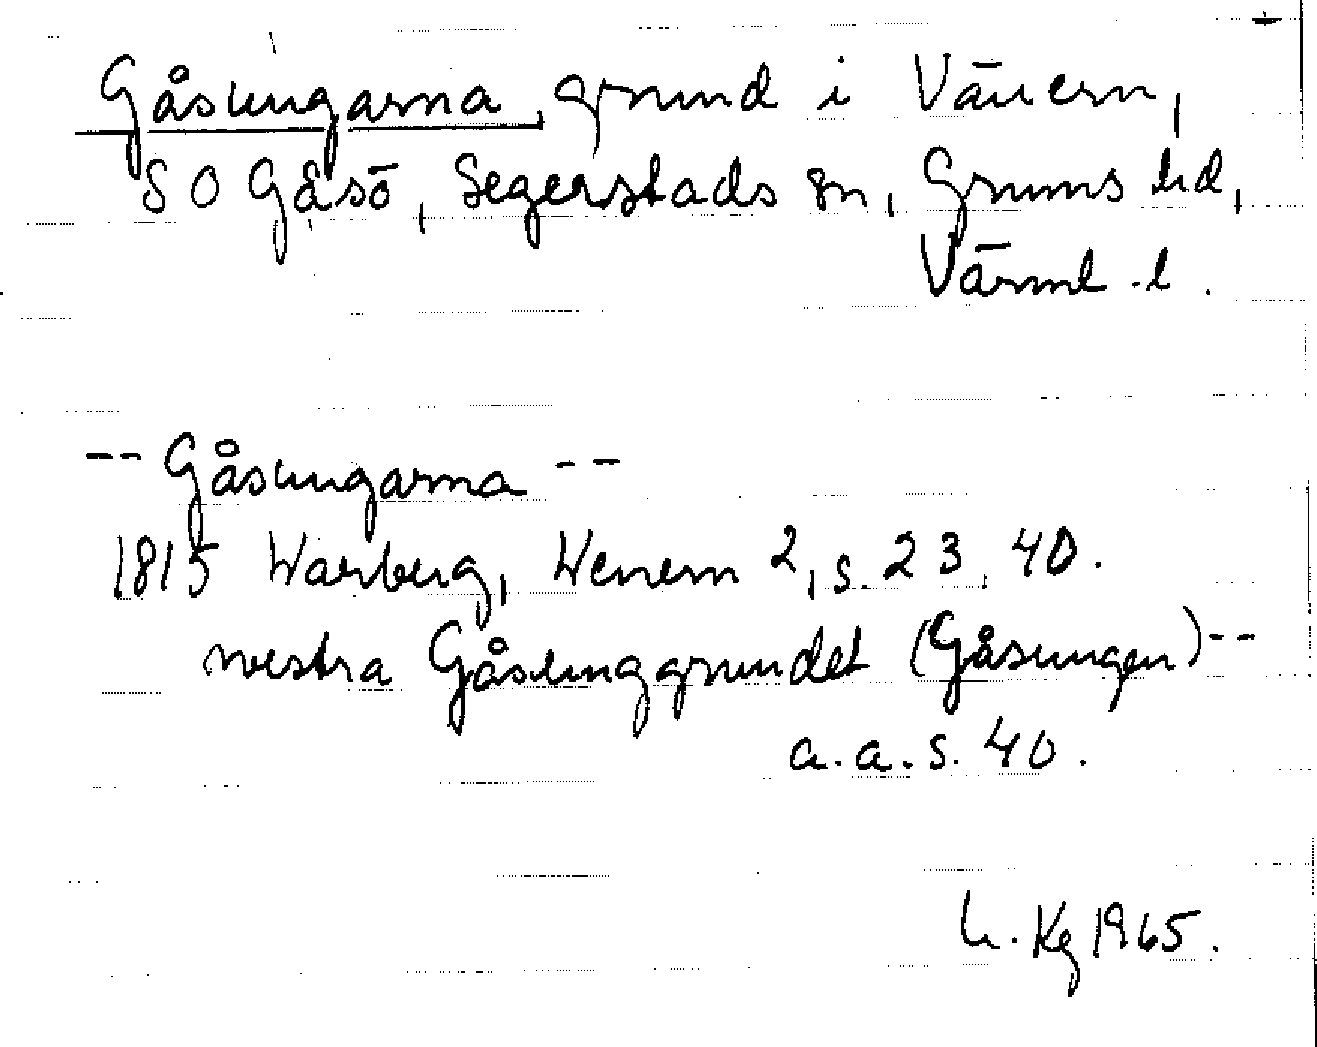 Gåsungarna, grund i Vänern,
SO Gåsö, Segerstads sn, Grums hd,
Värml. l.
-- Gåsungarna --
1815 Warberg, Wenern 2, s. 23, 40.
westra Gåsunggrundet (Gåsungen) --
a.a.s. 40.
Kg 1965.